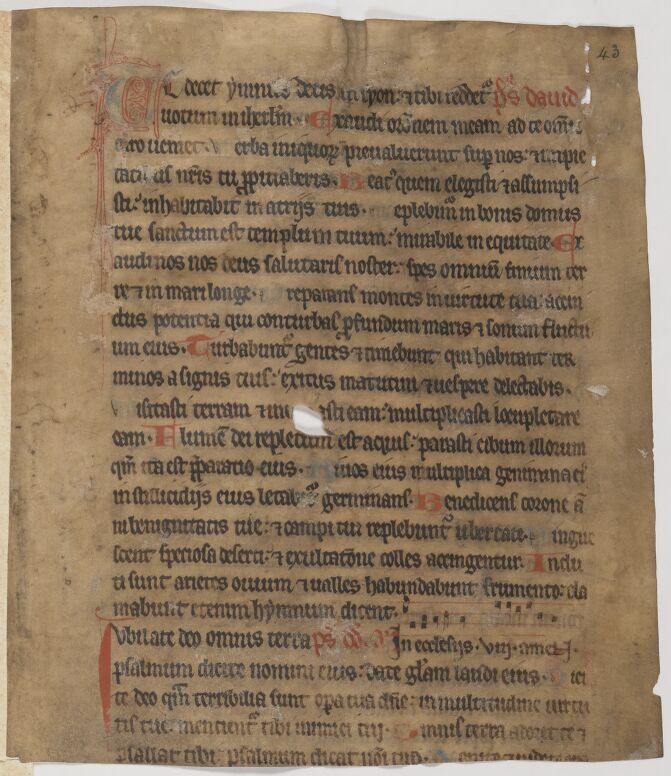 43
Te decet ymnus deus in syon: ⁊ tibi reddet᷑ ps dauid
uotum in ihrlm. Exaudi oronem meam ad te omis
caro ueniet. Verba iniquoꝝ preualuerunt sup nos: ⁊ impie
tatibus nris tu ppitiaberis. Beat᷒ quem elegisti ⁊ assumpsi
sti: inhabitabit in atrijs tuis. Replebim᷑ in bonis domus
tue sanctum est templum tuum: mirabile in equitate. Ex
audi nos deus salutaris noster: spes omnium finium ter
re ⁊ in mari longe. reparans montes in uirtute tua: accin
ctus potentia qui conturbas pfundum maris ⁊ sonum fluctu
um eius. Turbabunt᷑ gentes ⁊ timebunt qui habitant ter
minos a signis tuis: exitus matutini ⁊ uespere delectabis.
Visitasti terram ⁊ in asti eam: multiplicasti locupletare
eam. Flumen dei repletum est aquis: parasti cibum illorum
qm ita est pparatio eius. iuos eius multiplica genimina ei᷒
in stillicidijs eius letabit᷑ germinans. Benedicens corone ā
ni benignitatis tue: ⁊ campi tui replebunt᷑ ubertate. Pingue
scent speciosa deserti: ⁊ exultatione colles accingentur. Indu
ti sunt arietes ouium ⁊ ualles habundabunt frumento: cla
mabunt etenim hymnum dicent.
Iubilate deo omnis terra ps In ecclesijs. viij. ame J.
psalmum dicite nomini eius: date glam laudi eius. Dici
te deo qm terribilia sunt opa tua dne: in multitudine uirtu
tis tue mentient᷑ tibi inimici tui. Omnis terra adoret te ⁊
psallat tibi: psalmum dicat noi tuo. Venite ⁊ uidete